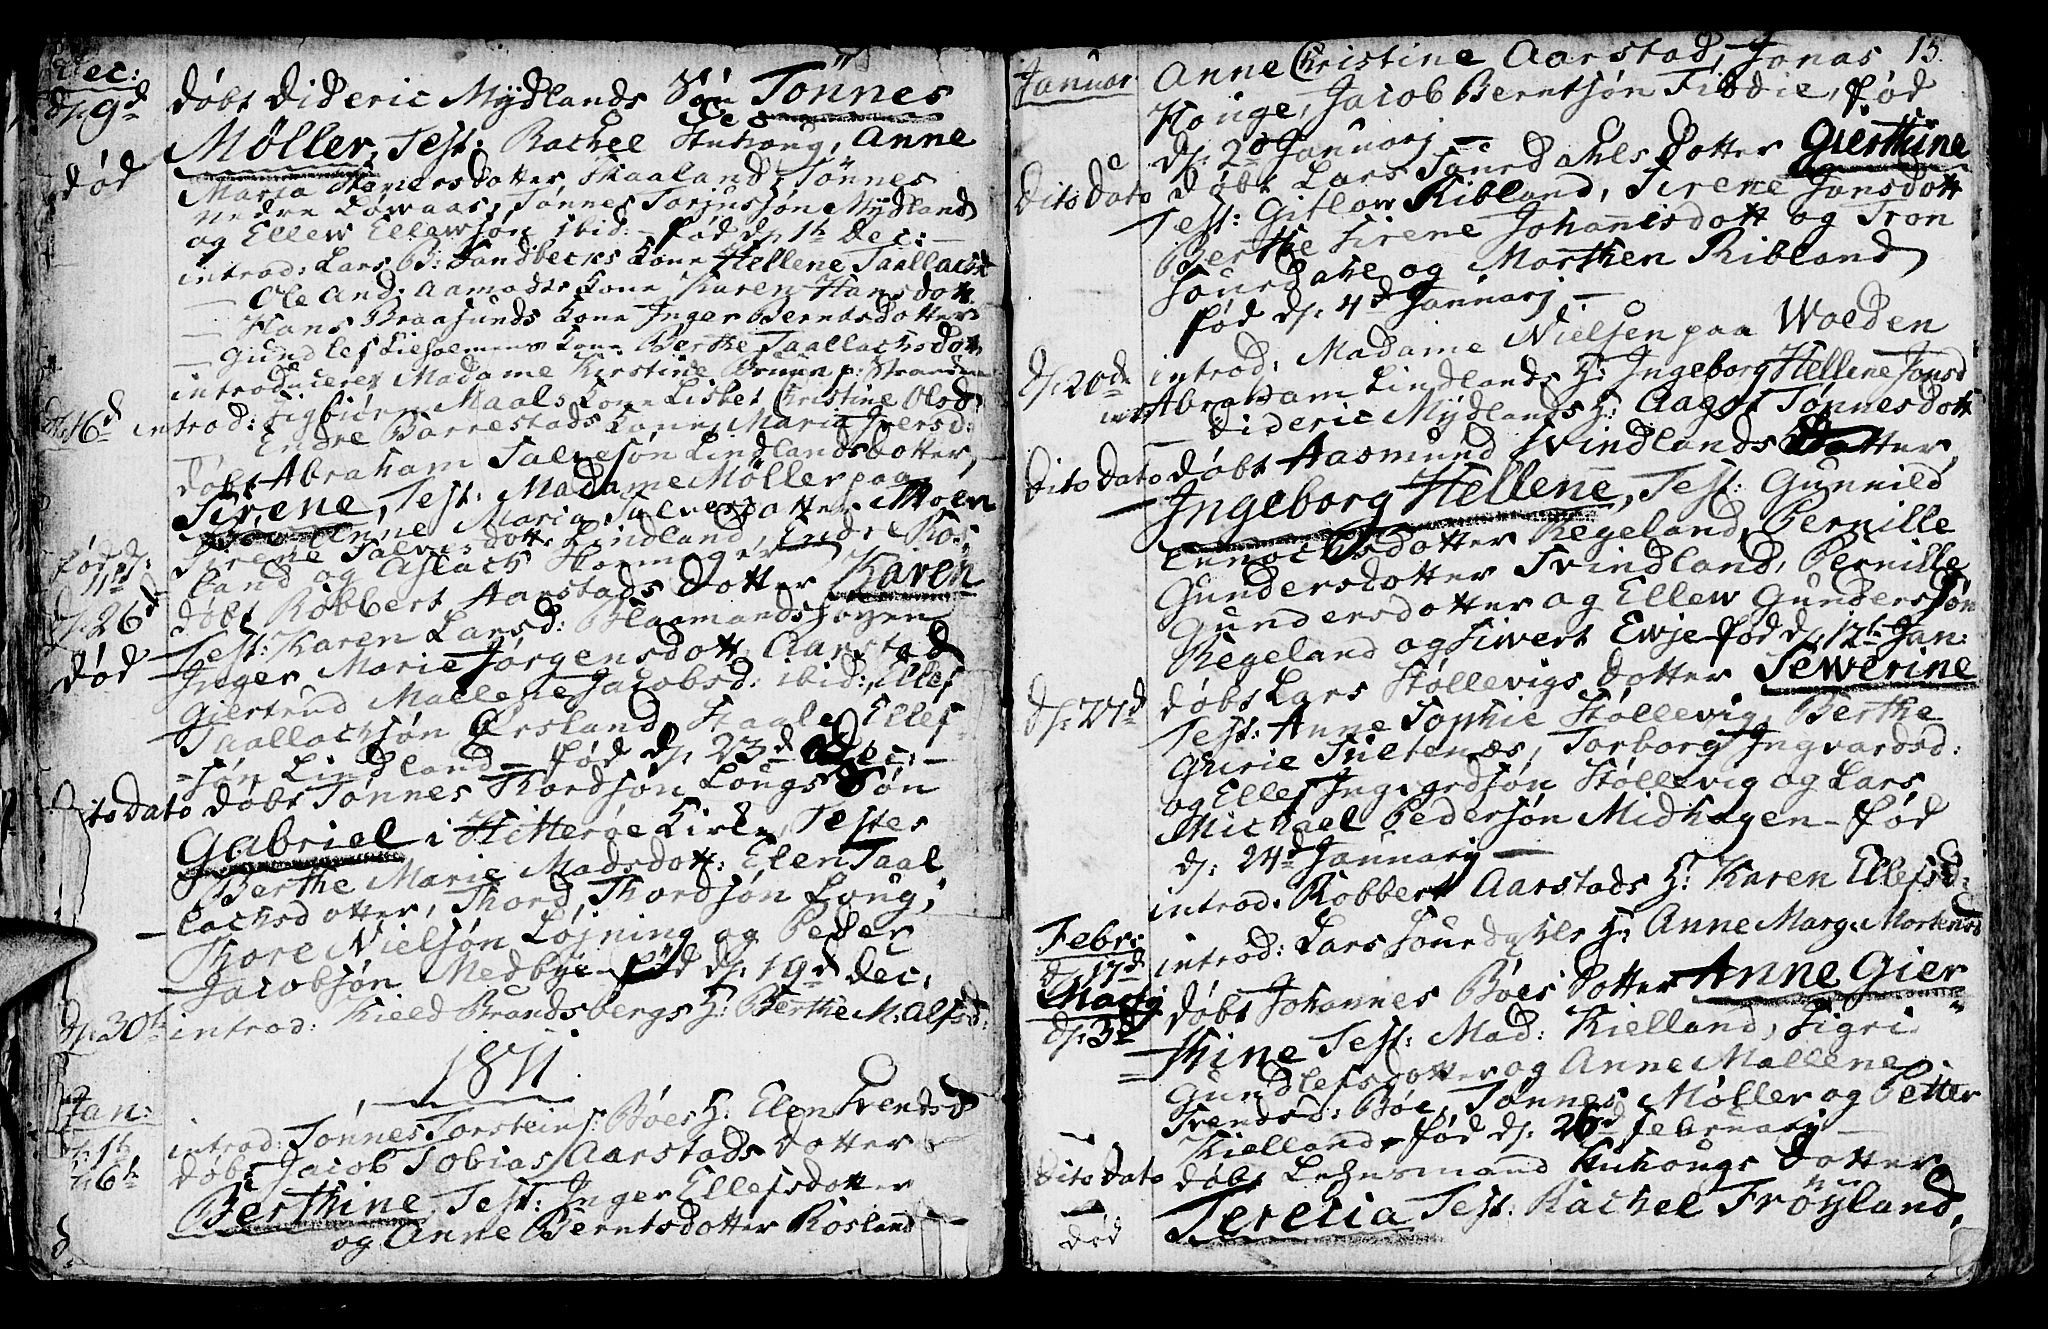 Dec:
d: 9d døbt Dideric Mydlands Søn Tønnes
Møller, Test: Rachel Stuhoug, Anne
død
Maria Skaaland, Tønnes
nedre Løwaas, Tønnes Torjussøn Mydland
og Ellew Ellewsøn ibid: – fød d: 1t Dec: –
introd: Lars B: Sandbecks Kone Hellene Taallachsd
– Ole And: Aamodts Kone Karen Hansdott
– Hans Braasunds Kone Inger Berntsdotter
– Gundlef Kone Berthe Taallachsdott
introduceret Madame Kirstine p:
d: 16d introd: Sigbiørn Maals Kone Lisbet Christine Olsd
– Endre Barrestads Kone Maria Iversd:
døbt Abraham Salvesøn Lindlands dotter,
Sirene, Test: Madame Møller paa
Anne Maria Salvesdotter Moen
Sirene Salvesdotter Lindland, Ende Ros:
fød d: 11d
land og Aslach
d: 26d døbt Robbert Aarstads Dotter Karen
Test: Karen Larsd: Blaamandshogen
død
Inger Marie Jørgensdott Aarstad
Giertrud Mallene Jacobsd: ibid: Ellef
Taallachsøn Ørsland, Staale Ellef
-søn Lindland – fød d: 23d Dec: –
Dito Dato døbt Tønnes Thordsøn Lougs Søn
Gabriel i Hitterøe Kirke, Testes
Berthe Marie Madsdott: Elen Taal
lachsdotter, Thord Thordsøn Loug,
Thore Nielsøn Løjning og Peder
Jacobsøn Medbye – fød d: 19d Dec:
d: 30t introd: Kield Brandsbergs H: Berthe M: Alfsd:
1811
Jan:
d: 1t introd: Tønnes Torsteins: Bøes H: Elen Svendsd
d: 6t døbt Jacob Tobias Aarstads dotter
Berthine, Test: Inger Ellefsdotter
og Anne Berntsdotter Rosland
15
Januar Anne Christine Aarstad, Jonas
Houge, Jacob Berntsøn Fidie, fød
d: 2d Januarj –
Dito Dato døbt Lars Sourdahls Dotter Gierthine
Test: Gitlow Ribland, Sirene Jonsdott
Berthe Sirene Johanisdott og Tron
Sourdahl og Morthen Ribland
fød d: 4d Januarj –
d: 20de introd: Madame Nielsen paa Woeden
Abraham Lindlands H: Ingeborg Hellene Jonsd
– Dideric Mydlands H: Aagot Tønnesdott
Dito Dato døbt Aasmund Svindlands Datter,
Ingeborg Hellene, Test: Gunnild
Enochsdotter Regeland, Pernille
Gundersdotter Svindland, Pernille
Gundersdotter og Ellew Gundersøn
Regeland og Siwert Ewje fød d: 12te Jan:
d: 27d døbt Lars Støllevigs Dotter Sewerine
Test: Anne Sophie Støllevig, Berthe
Gurie Torborg Ingvardsd:
og Ellef Støllevig og Lars
Michael Pedersøn Midhagen – fød
d: 24d Januarj –
introd: Robbert Aarstads H: Karen Ellefsd:
Febr:
d: 17d introd: Lars Sourdahls H: Anne Marg: Mortensd
Martj
d: 3d døbt Johannes Bøes Dotter Anne Gier
thine Test: Mad: Kielland, Sigri
Gundlefsdotter og Anne Mallene
Svendsd: Bøe, Tønnes Møller og Petter
Kielland – fød d: 26d februarj –
Dito Dato døbt Lehnsmand Stuhougs Dotter
død
Terecia Test: Rachel Frøyland,